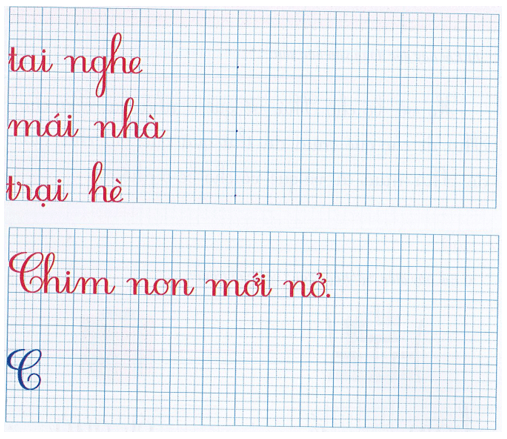 tai nghe
mái nhà
trại hè
Chim non mới nở.
C